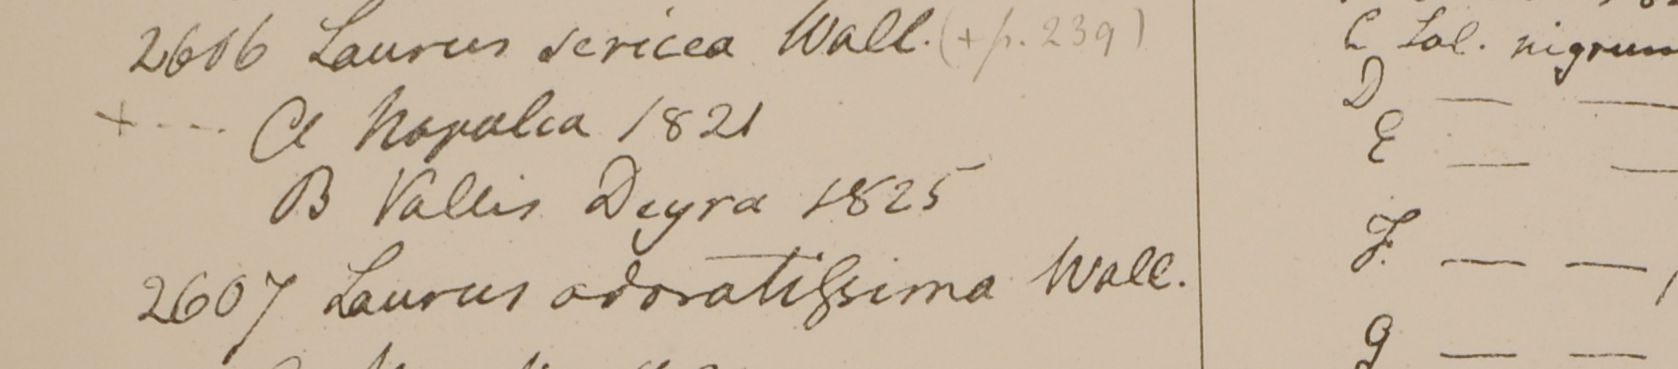 2606 Laurus sericea Wall. (+ p. 239)
+ --- A Napalia 1821
B Vallis Deyra 1825
2607 Laurus odoratissima Wall.
C Sol. nigrum
D — —
E — —
F. — —
G — —